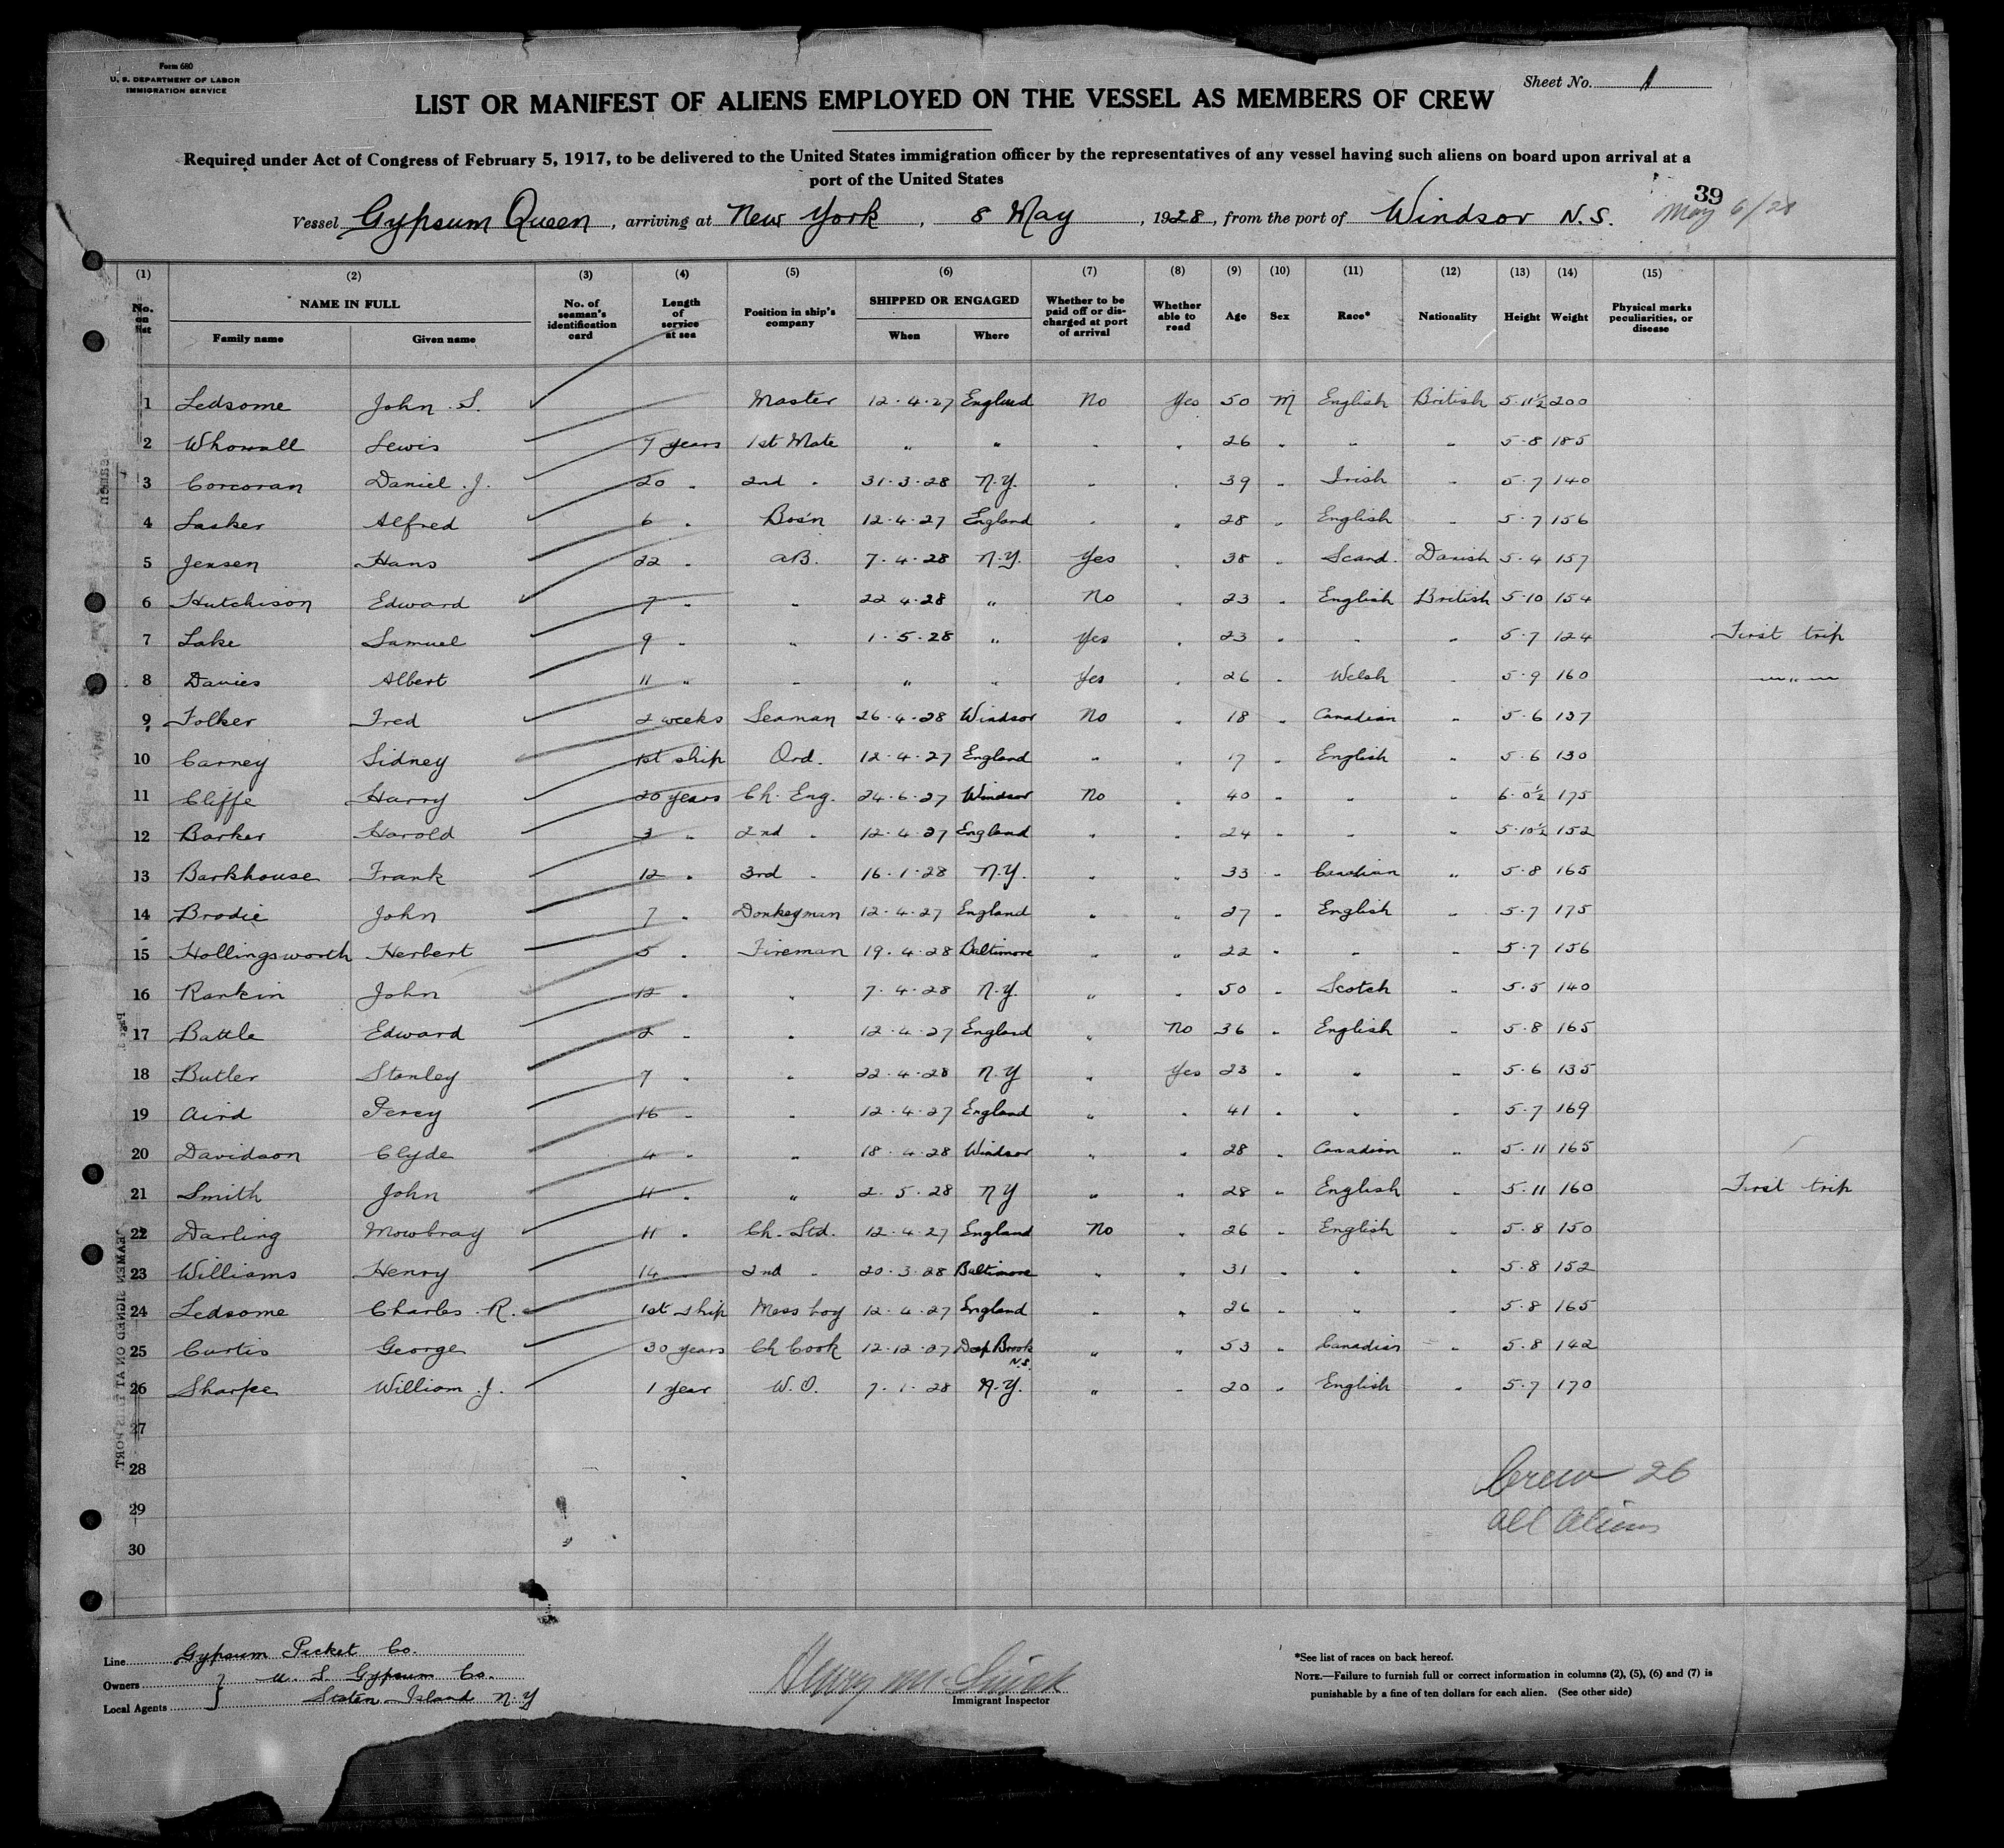 Form 680
U. S. DEPARTMENT OF LABOR
IMMIGRATION SERVICE
Sheet No. 1
LIST OR MANIFEST OF ALIENS EMPLOYED ON THE VESSEL AS MEMBERS OF CREW
Required under Act of Congress of February 5, 1917, to be delivered to the United States immigration officer by the representatives of any vessel having such aliens on board upon arrival at a
port of the United States
39
Vessel Gypsum Queen, arriving at New York, 8 May, 1928, from the port of Windsor N.S. May 6/28
(1) (2) (3) (4) (5) (6) (7) (8) (9) (10) (11) (12) (13) (14) (15)
No. on list NAME IN FULL Family name Given name No. of seaman's identification card Length of service at sea Position in ship's company SHIPPED OR ENGAGED When Where Whether to be paid off or discharged at port of arrival Whether able to read Age Sex Race* Nationality Height Weight Physical marks peculiarities, or disease
1 Ledsome John S. Master 12.4.27 England No Yes 50 M English British 5.11½ 200
2 Whowall Lewis 7 years 1st Mate " " " " 26 " " " 5.8 185
3 Corcoran Daniel J. 20 " 2nd " 31.3.28 N.Y. " " 39 " Irish " 5.7 140
4 Lasker Alfred 6 " Bos'n 12.4.27 England " " 28 " English " 5.7 156
5 Jensen Hans 22 " AB. 7.4.28 N.Y. Yes " 38 " Scand. Danish 5.4 157
6 Hutchison Edward 7 " " 22.4.28 " No " 23 " English British 5.10 154
7 Lake Samuel 9 " " 1.5.28 " Yes " 23 " " " 5.7 124 First trip
8 Davies Albert 11 " " " " Yes " 26 " Welsh " 5.9 160 "
9 Folker Fred 2 weeks Seaman 26.4.28 Windsor No " 18 " Canadian " 5.6 137
10 Carney Sidney 1st ship Ord. 12.4.27 England " " 17 " English " 5.6 130
11 Cliffe Harry 20 years Ch. Eng. 24.6.27 Windsor No " 40 " " " 6.0½ 175
12 Barker Harold 3 " 2nd " 12.4.27 England " " 24 " " " 5.10½ 152
13 Barkhouse Frank 12 " 3rd " 16.1.28 N.Y. " " 33 " Canadian " 5.8 165
14 Brodie John 7 " Donkeyman 12.4.27 England " " 27 " English " 5.7 175
15 Hollingsworth Herbert 5 " Fireman 19.4.28 Baltimore " " 22 " " " 5.7 156
16 Rankin John 12 " " 7.4.28 N.Y. " " 50 " Scotch " 5.5 140
17 Battle Edward 2 " " 12.4.27 England " No 36 " English " 5.8 165
18 Butler Stanley 7 " " 22.4.28 N.Y " Yes 23 " " " 5.6 135
19 Aird Percy 16 " " 12.4.27 England " " 41 " " " 5.7 169
20 Davidson Clyde 4 " " 18.4.28 Windsor " " 28 " Canadian " 5.11 165
21 Smith John 11 " " 2.5.28 NY " " 28 " English " 5.11 160 First trip
22 Darling Mowbray 11 " Ch. Std. 12.4.27 England No " 26 " English " 5.8 150
23 Williams Henry 14 " 2nd " 20.3.28 Baltimore " " 31 " " " 5.8 152
24 Ledsome Charles R. 1st ship Mess boy 12.4.27 England " " 26 " " " 5.8 165
25 Curtis George 30 years Ch Cook 12.12.27 Deep Brook N.S. " " 53 " Canadian " 5.8 142
26 Sharpe William J. 1 year W.O. 7.1.28 N.Y. " " 20 " English " 5.7 170
27
28
29
30
Crew 26
All Aliens
Line Gypsum Packet Co.
Owners } U. S. Gypsum Co.
Local Agents } Staten Island N.Y
Immigrant Inspector
*See list of races on back hereof.
NOTE.—Failure to furnish full or correct information in columns (2), (5), (6) and (7) is
punishable by a fine of ten dollars for each alien. (See other side)